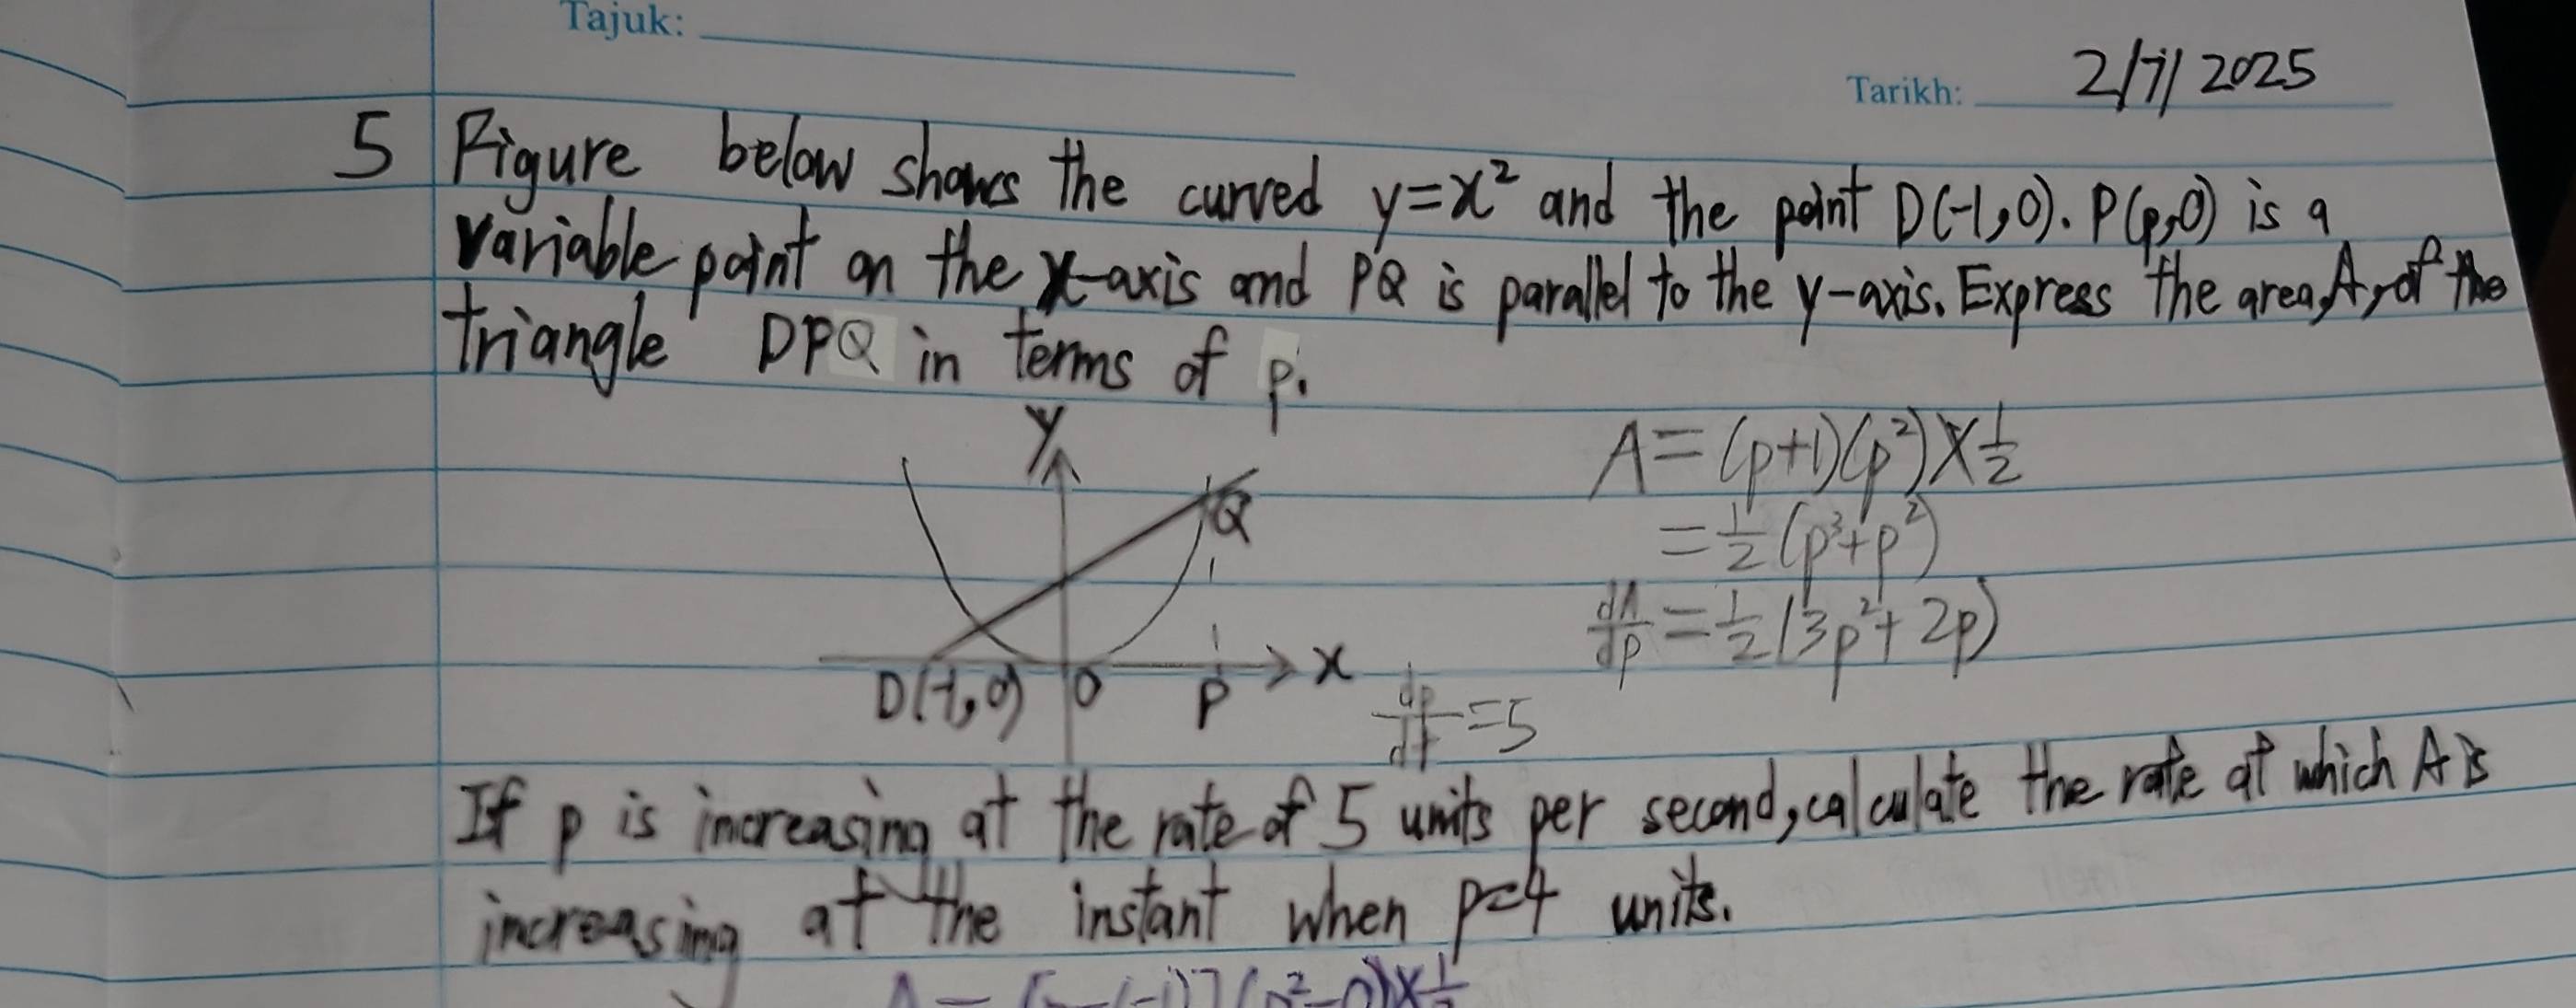 Tajuk:
Tarikh: 2/7/2025
5 Figure below shows the curved y=x² and the point D(-1,0). P(p,0) is a
variable point on the x-axis and PQ is parallel to the y-axis. Express the area, A, of the
triangle DPQ in terms of p.
y
Q
D(-1,0) O P x
A = (p+1)(p²)×½
= ½(p³+p²)
dA/dp = ½(3p²+2p)
dp/dt = 5
If p is increasing at the rate of 5 units per second, calculate the rate at which A is
increasing at the instant when p=4 units.